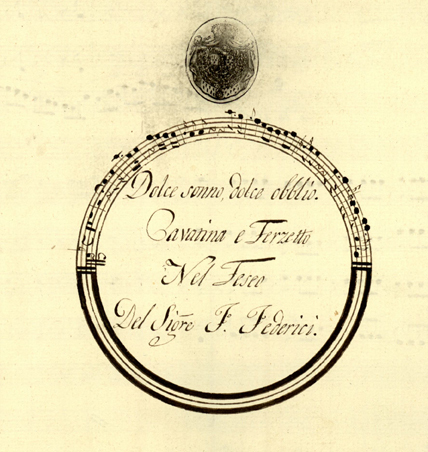 Dolce sonno, dolce obblio.
Cavatina e Terzetto
Nel Teseo
Del Sigre F. Federici.